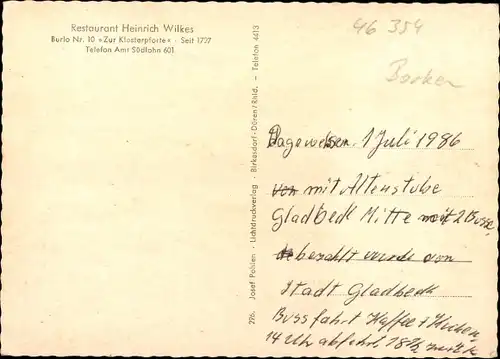 Restaurant Heinrich Wilkes
Burlo Nr. 10 »Zur Klosterpforte« · Seit 1727
Telefon Amt Südlohn 601
296. Josef Pohlen · Lichtdruckverlag · Birkesdorf-Düren/Rhld. — Telefon 4413
46 354
Borken
Dagewesen. 1 Juli 1986
von mit Altenstube
Gladbeck Mitte mit 2 Busse,
bezahlt wurde von
Stadt Gladbeck
Bussfahrt Kaffee + Kuchen,
14 Uhr abfahrt, 18½ zurück